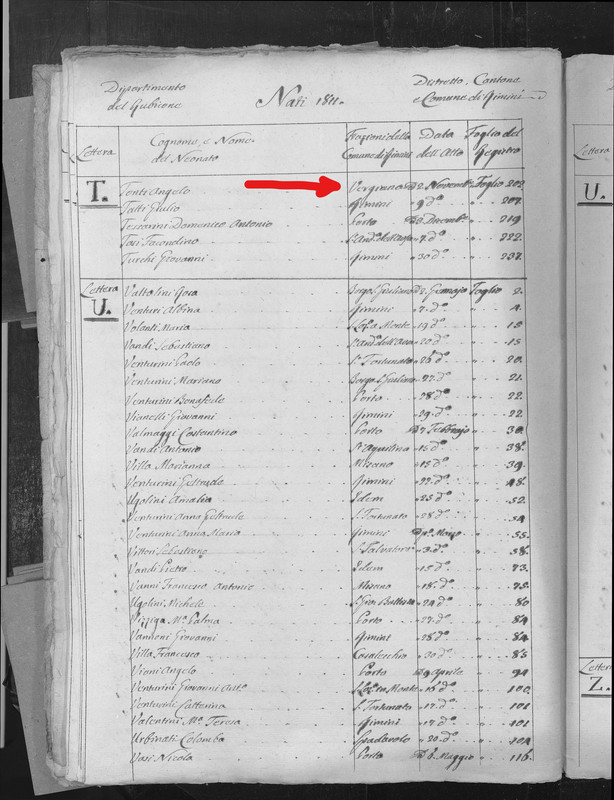 Dipartimento
del Rubicone
Nati 1811.
Distretto, Cantone
e Comune di Rimini
Lettera
Cognome, e Nome
del Neonato
Frazioni della
Comune di Rimini
Data
dell'Atto
Foglio del
Registro
T.
Tonti Angelo Verginano D 2. Novemb.e Foglio 202.
Tatti Giulio Rimini " 9 d.o " 207.
Tessarini Domenico Antonio Porto D 3 Dicemb.e " 219
Tosi Secondino " 7 d.o " 222.
Turchi Giovanni Rimini " 30 d.o " 237.
Lettera
U.
Valtolini Borgo S. Giuliano D 2. Gennajo Foglio 2.
Venturi Albina Rimini " 7 d.o " 4.
Volanti Maria " 19 d.o " 15
Vandi Sebastiano " 20 d.o " 15
Venturini Paolo S. Fortunato " 26 d.o " 20.
Venturini Mariano Borgo S. Giuliano " 27 d.o " 21.
Venturini Bonafede Porto " 28 d.o " 22.
Vianelli Giovanni Rimini " 29 d.o " 22.
Valmaggi Costantino Porto D 7 Febbrajo " 30.
Vandi Antonio S. Agostino " 15 d.o " 38.
Villa Marianna Misano " 15 d.o " 39.
Venturini Geltrude Rimini " 22 d.o " 48.
Ugolini Amalia Idem " 25 d.o " 52.
Venturini Anna Geltrude S. Fortunato " 28 d.o " 54
Venturini Anna Maria Rimini D 1.o Marzo " 55.
Vittori Sebastiano S. Salvatore " 3 d.o " 58.
Vandi Pietro Idem " 15 d.o " 73.
Vanni Francesco Antonio Misano " 18 d.o " 75.
Ugolini Michele S. Gio. Battista " 24 d.o " 80
M.a Palma Porto " 27 d.o " 84
Vannoni Giovanni Rimini " 28 d.o " 84.
Villa Francesco Casalecchio " 30 d.o " 85
Viani Angelo Porto D 9 Aprile " 94
Venturini Giovanni Ant.o " 16 d.o " 100.
Venturini Catterina S. Fortunato " 17 d.o " 101
Valentini M.a Teresa Rimini " 17 d.o " 101.
Urbinati Colomba Spadarolo " 20 d.o " 104
Vasi Nicola Porto D 6. Maggio " 116.
Lettera
U.
Lettera
Z.